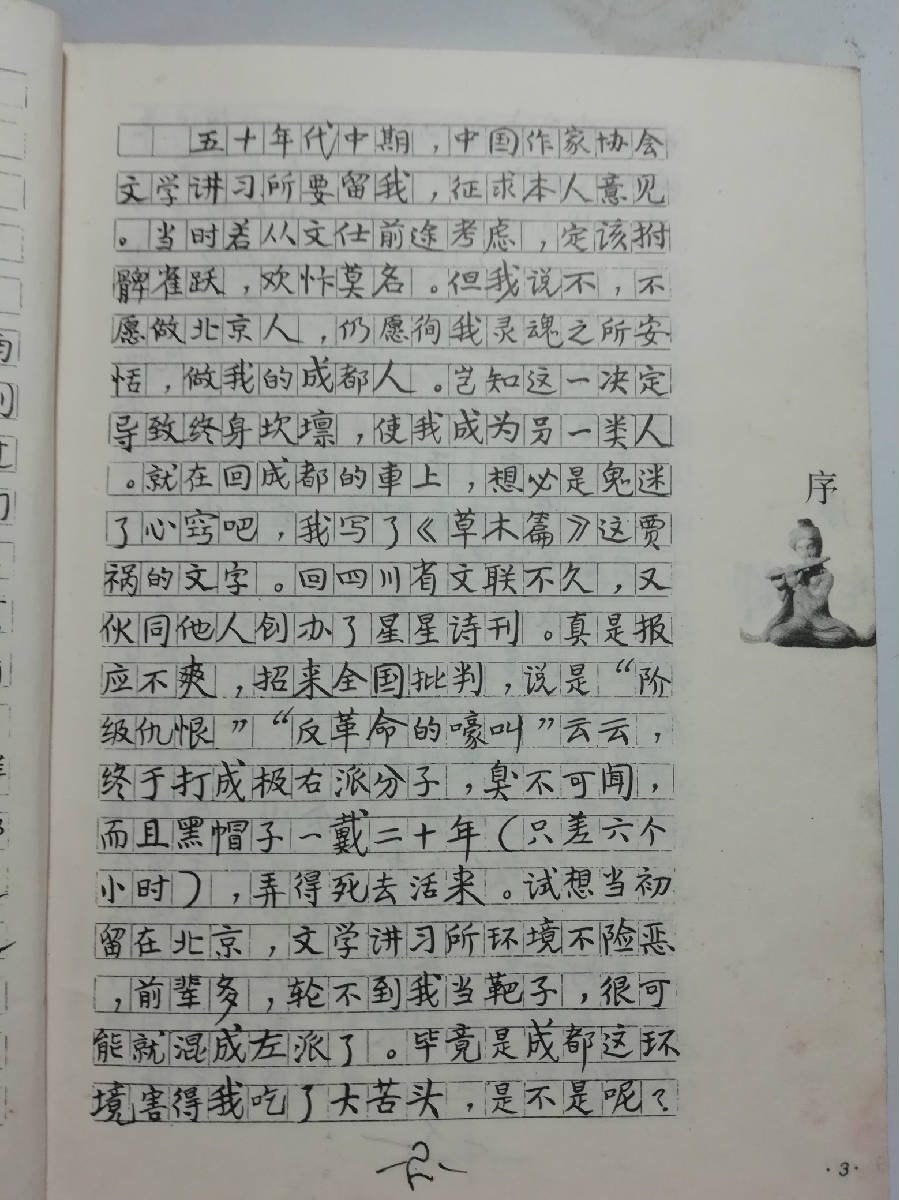 五十年代中期，中国作家协会
文学讲习所要留我，征求本人意见
。当时若从文仕前途考虑，定该拊
髀雀跃，欢忭莫名。但我说不，不
愿做北京人，仍愿徇我灵魂之所安
恬，做我的成都人。岂知这一决定
导致终身坎壈，使我成为另一类人
。就在回成都的車上，想必是鬼迷
了心窍吧，我写了《草木篇》这贾
祸的文字。回四川省文联不久，又
伙同他人创办了星星诗刊。真是报
应不爽，招来全国批判，说是“阶
级仇恨”“反革命的嚎叫”云云，
终于打成极右派分子，臭不可闻，
而且黑帽子一戴二十年（只差六个
小时），弄得死去活来。试想当初
留在北京，文学讲习所环境不险恶
，前辈多，轮不到我当靶子，很可
能就混成左派了。毕竟是成都这环
境害得我吃了大苦头，是不是呢？
序
2
·3·